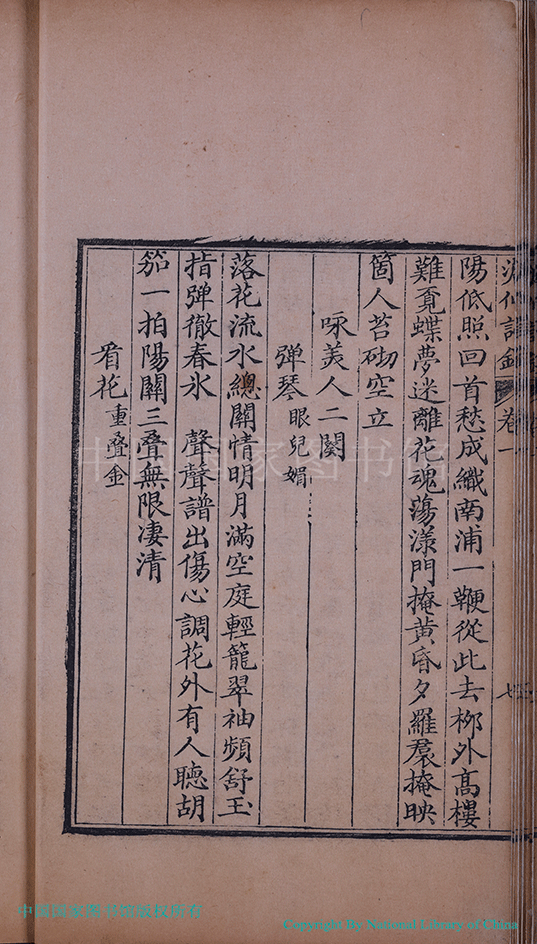 卷一
陽低照回首愁成織南浦一鞭從此去桺外高樓
難覔蝶夢迷離花魂蕩漾門掩黃昏夕羅裠掩映
箇人苔砌空立
咏美人二闋
弹琴 眼兒媚
落花流水總關情明月滿空庭輕籠翠袖頻舒玉
指弹徹春氷 聲聲譜出傷心調花外有人聽胡
笳一拍陽關三叠無限淒清
看花 重叠金
中国国家图书馆
中国国家图书馆版权所有
Copyright By National Library of China